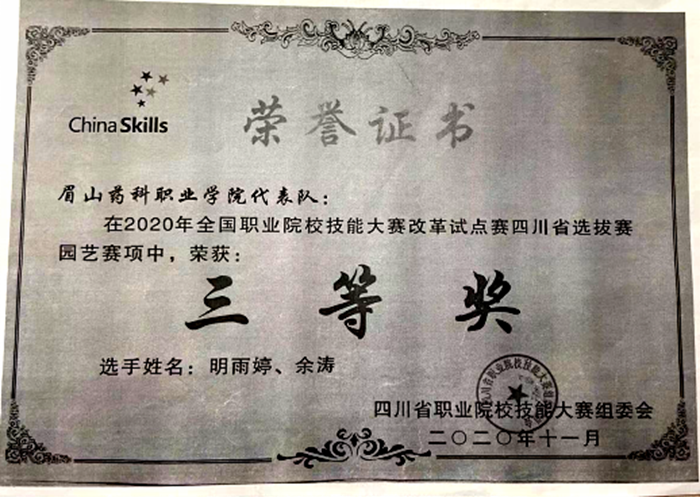 ChinaSkills
荣誉证书
眉山药科职业学院代表队：
在2020年全国职业院校技能大赛改革试点赛四川省选拔赛
园艺赛项中，荣获：
三等奖
选手姓名：明雨婷、余涛
四川省职业院校技能大赛组委会
二〇二〇年十一月